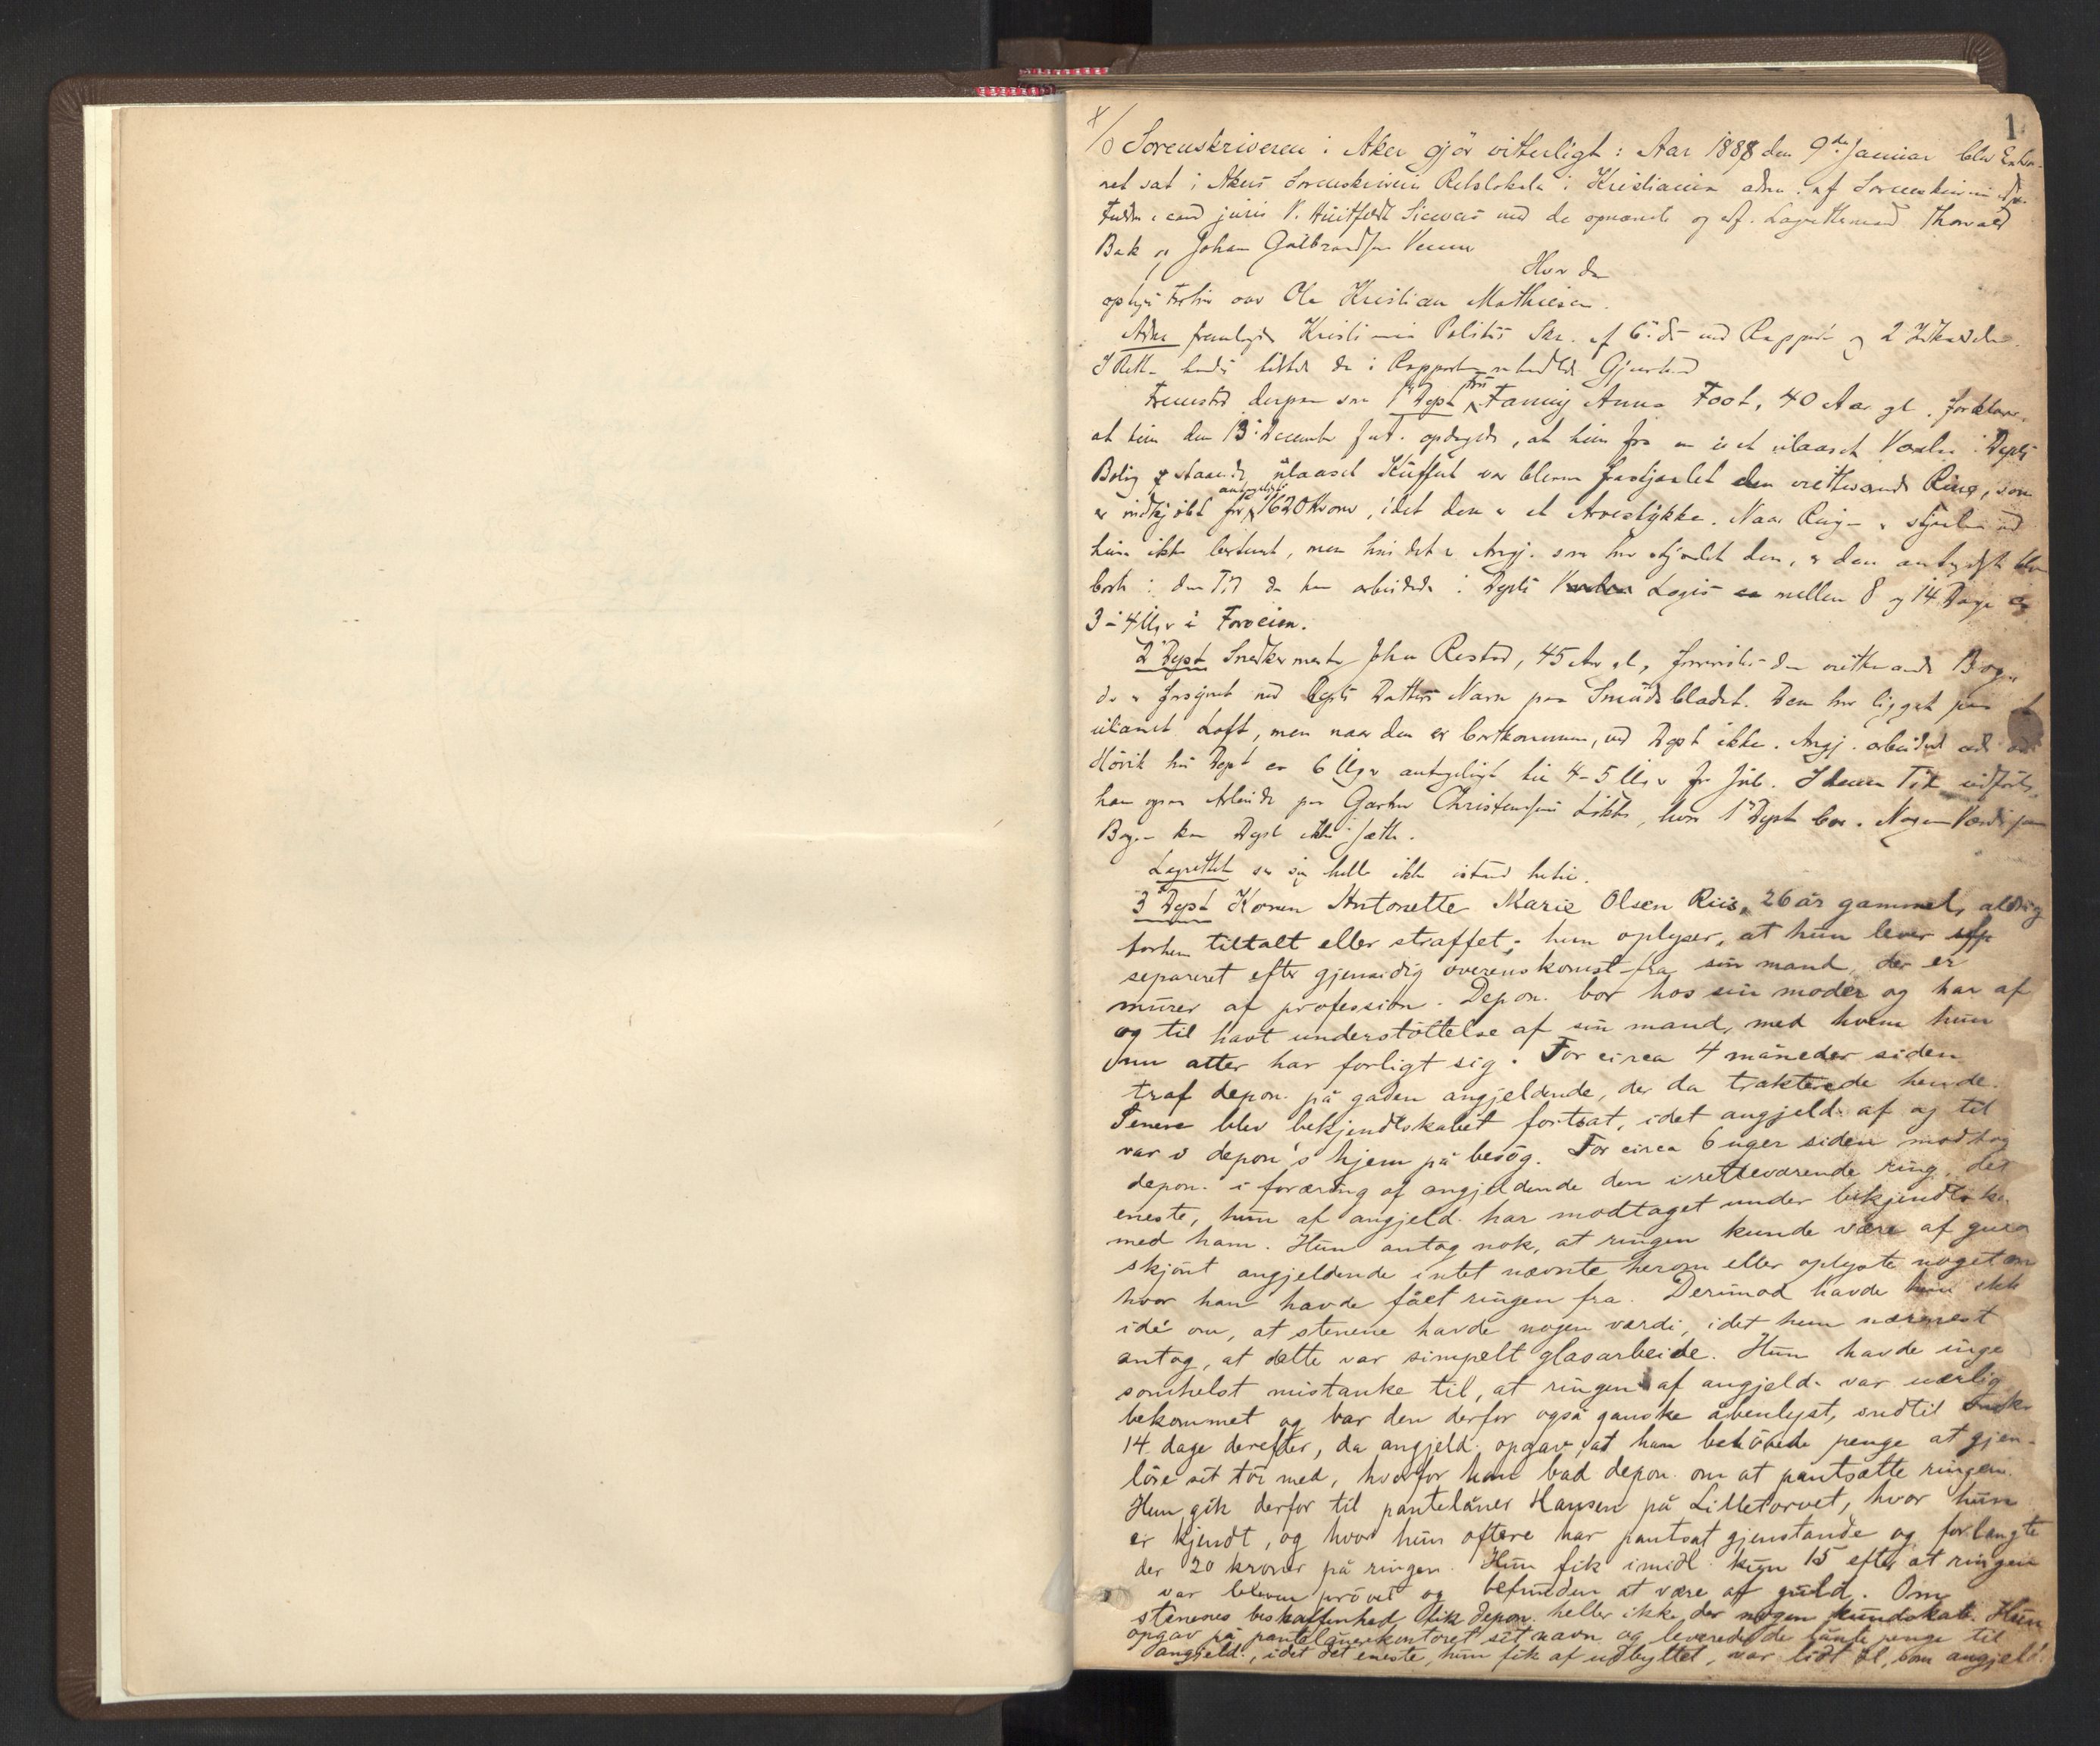 1
Sorenskriveren i Aker gjör vitterligt: Aar 1888 den 9de Januar blev Extra-
ret sat i Akers Sorenskriveris Retslokale i Kristiania adm. af Sorenskriverens
Fuldm. cand juris V. Huitfeldt Sievers med de opnævnte og edf. Lagrettemænd Thorvald
Bak og Johan Gulbrandsen
Hvor da
optoges Forhör over Ole Kristian Mathiesen.
Adm. fremlagde Kristiania Politis Skr. af 6. ds med Rapport og 2
I Retten havdes tilstede de i Rapporten
Fremstod derpaa som 1ste Depst Fru Fanny Anna Foot, 40 Aar gl. forklarer,
at hun den 13. December sidst. opdagede, at hun fra en i et ulaaset Værelse i Depts
Bolig staaende ulaaset Kuffert var bleven frastjaalet den iretteværende Ring, som
er indkjöbt for antageligt 1620 Kroner, idet den er et Arvestykke. Naar Ringen er stjaalen ved
hun ikke bestemt, men hvis det er Angj. som har stjaalet den, er den antageligt bleven
borte i den Tid da han arbeidede i Depts Logis mellem 8 og 14 Dage
3 à 4 Uger i Forveien.
2 Depst Snedkermester John Restad, 45 Aar gl., den iretteværende Bog,
der er forsynet med Depts Datters Navn paa Smudsbladet. Den har ligget paa et
ulaaset Loft, men naar den er bortkommen, ved Depst ikke. Angj. arbeidede
Hövik hos Depst en 6 Uger antageligt til 4-5 Uger för Jul. I denne Tid udförte
han ogsaa Arbeide paa Gartner Christensens Lökke, hvor 1 Depst bor. Nogen Værdi paa
Bogen kan Depst ikke sætte.
Lagrettet ser sig heller ikke istand hertil.
3 Depst Konen Antonette Marie Olsen Riis, 26 år gammel, aldrig
forhen tiltalt eller straffet; hun oplyser, at hun lever
separeret efter gjensidig overenskomst fra sin mand, der er
murer af profession. Depon. bor hos sin moder og har af
og til havt understöttelse af sin mand, med hvem hun
nu atter har forligt sig. For circa 4 måneder siden
traf depon. på gaden angjeldende, der da trakterede hende.
Senere blev bekjendtskabet fortsat, idet angjeld. af og til
var i depon's hjem på besög. For circa 6 uger siden modtog
depon. i foræring af angjeldende den iretteværende ring, det
eneste, hun af angjeld. har modtaget under bekjendtska
med ham. Hun antog nok, at ringen kunde være af guld
skjönt angjeldende intet nævnte herom eller oplyste noget om
hvor han havde fået ringen fra. Derimod havde hun ikke
idé om, at stenene havde nogen værdi, idet hun nærmest
antog, at dette var simpelt glasarbeide. Hun havde inge
somhelst mistanke til, at ringen af angjeld. var uærlig
bekommet og bar den derfor også ganske åbenlyst, indtil
14 dage derefter, da angjeld. opgav, at han behövede penge at gjen-
löse sit töi med, hvorfor han bad depon. om at pantsætte ringen.
Hun gik derfor til pantelåner Hansen på Lilletorvet, hvor hun
er kjendt, og hvor hun oftere har pantsat gjenstande og forlangte
der 20 kroner på ringen. Hun fik imidl. kun 15 efter at ringen
var bleven prövet og befunden at være af guld. Om
stenenes beskaffenhed fik depon. heller ikke der nogen kundskab. Hun
opgav på pantelånerkontoret sit navn og leverede de lånte penge til
angjeld., idet det eneste, hun fik af udbyttet, var lidt öl, som angjeld.